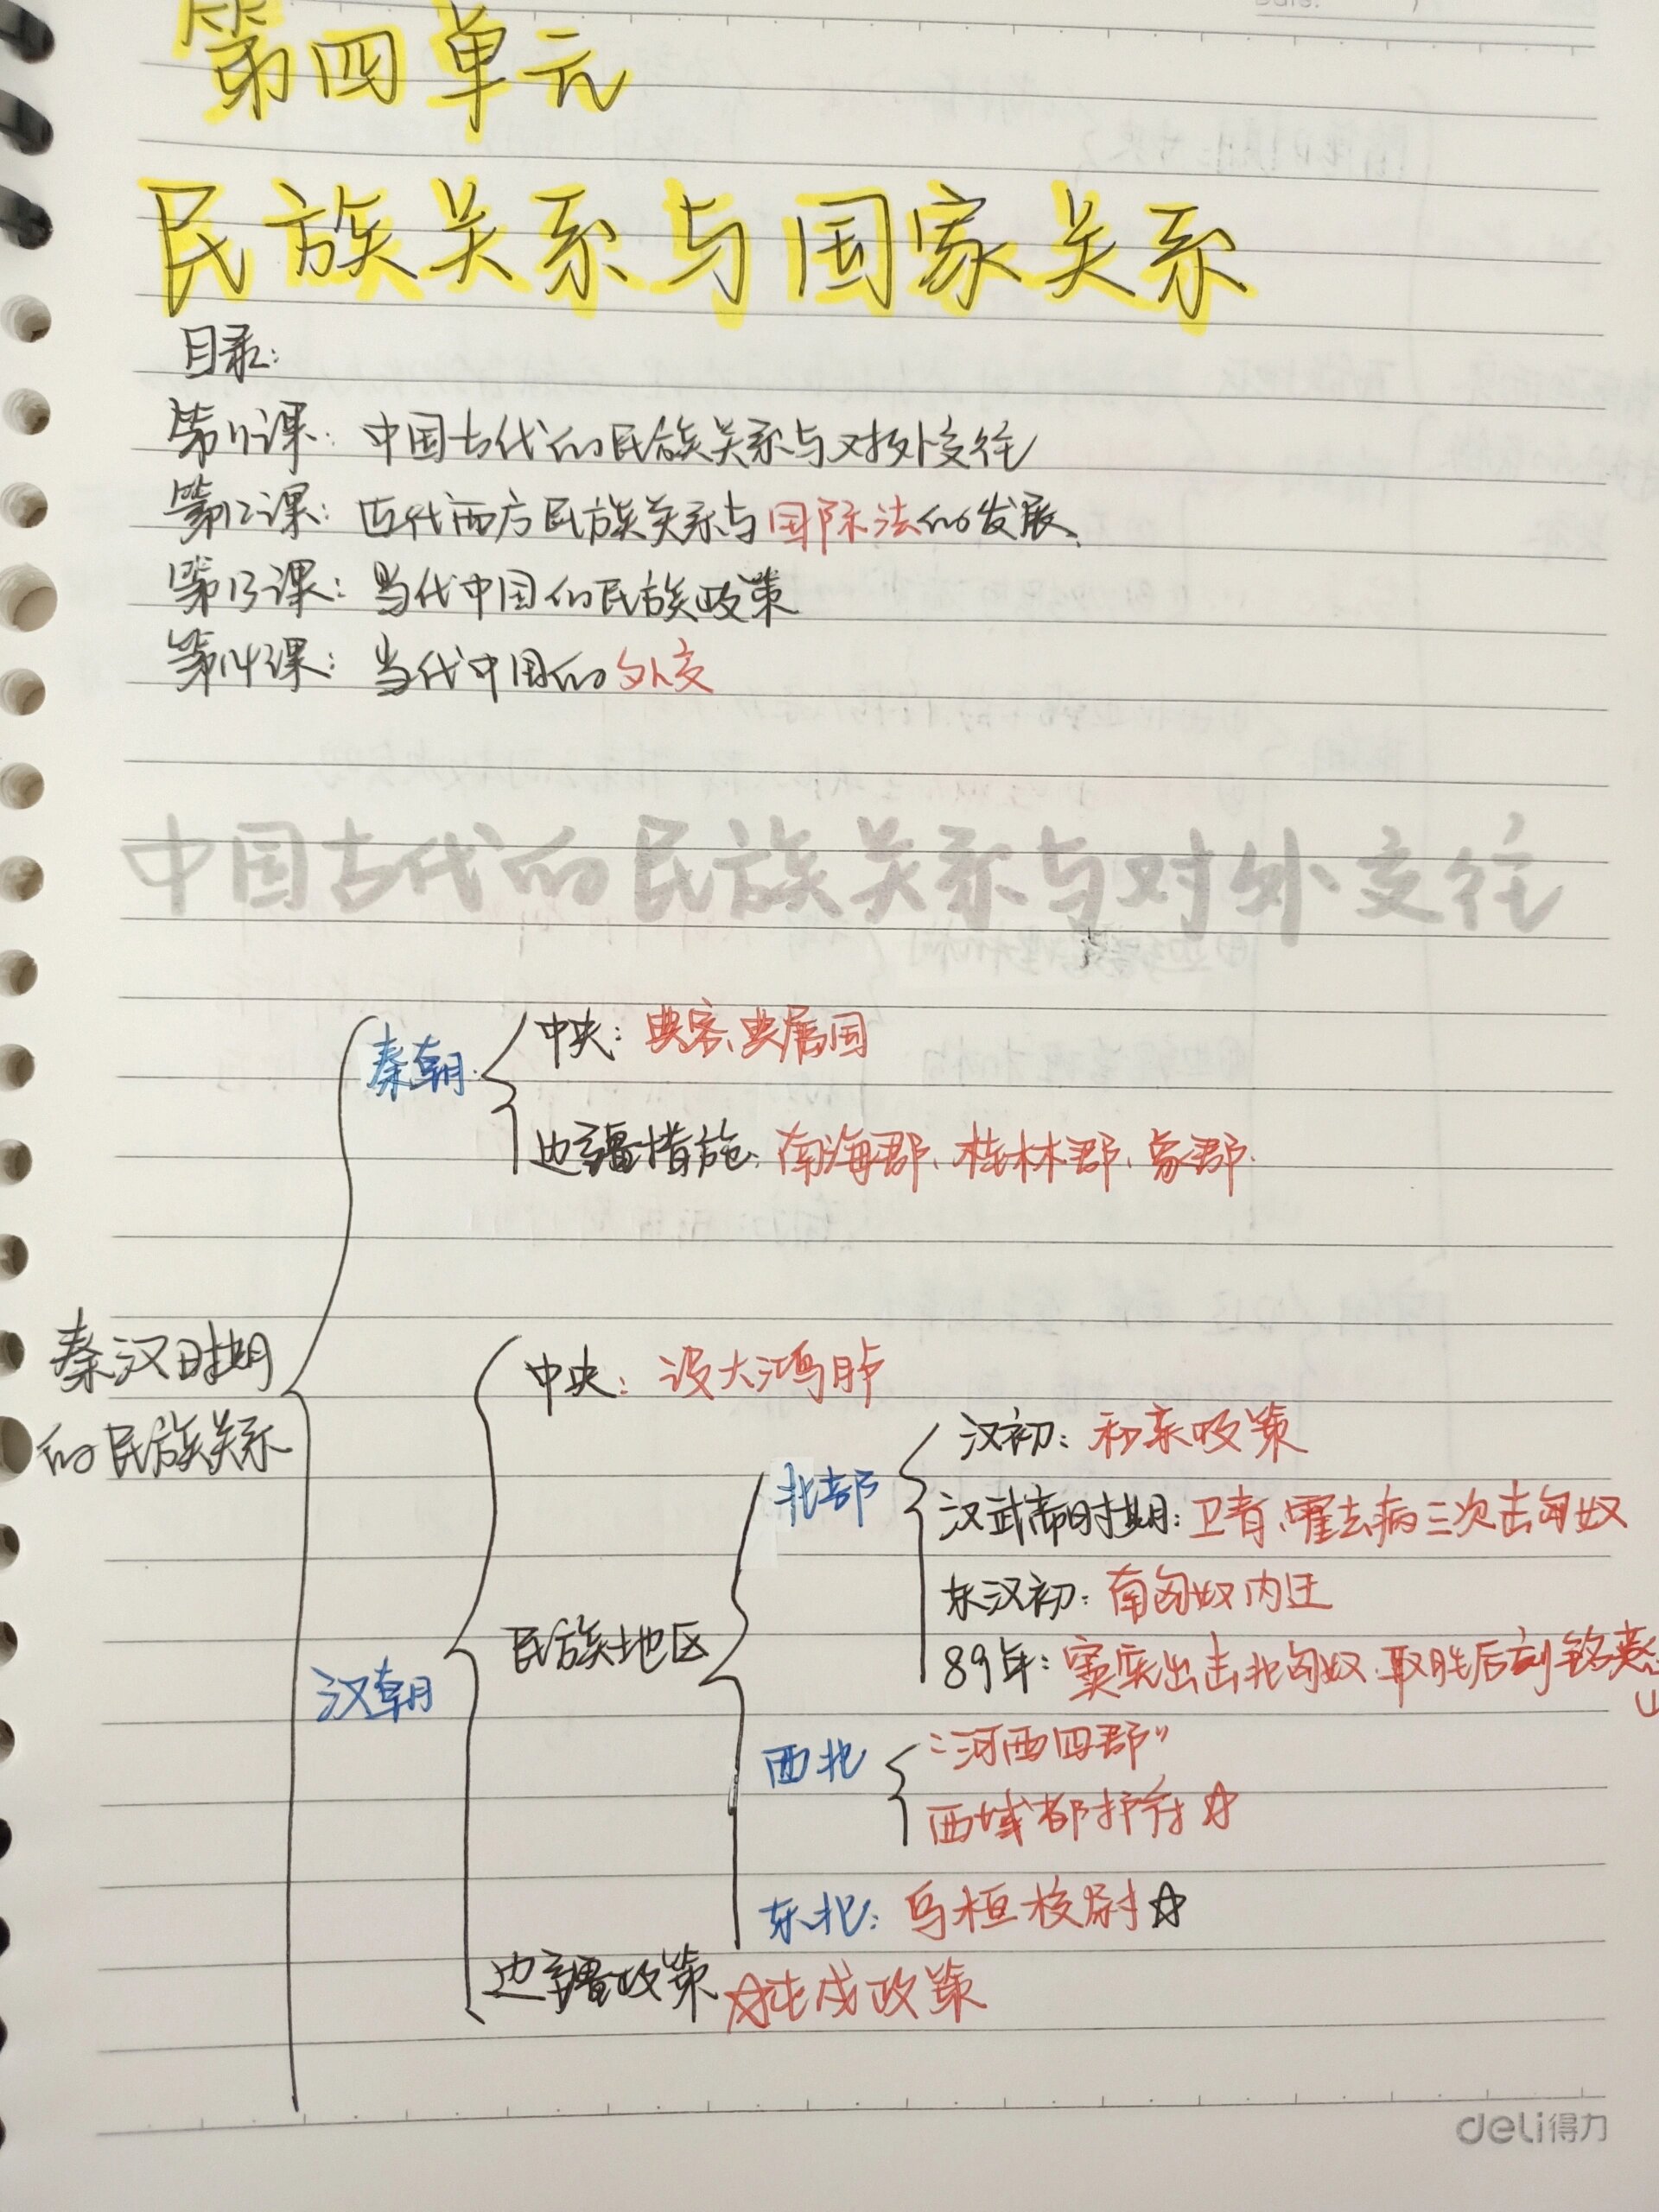 第四单元
民族关系与国家关系
目录:
第11课: 中国古代的民族关系与对外交往
第12课: 近代西方民族关系与国际法的发展
第13课: 当代中国的民族政策
第14课: 当代中国的外交
中国古代的民族关系与对外交往
秦汉时期
的民族关系
秦朝
中央: 典客、典属国
边疆措施: 南海郡、桂林郡、象郡
汉朝
中央: 设大鸿胪
民族地区
北部
汉初: 和亲政策
汉武帝时期: 卫青、霍去病三次击匈奴
东汉初: 南匈奴内迁
89年: 窦宪出击北匈奴、取胜后刻铭燕
西北
"河西四郡"
西域都护府☆
东北: 乌桓校尉☆
边疆政策 ☆屯戍政策
deli得力